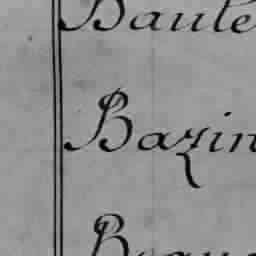 Baule
Bazin